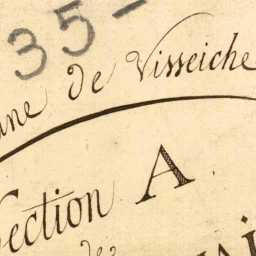 35-
une de Visseiche
Section A
de